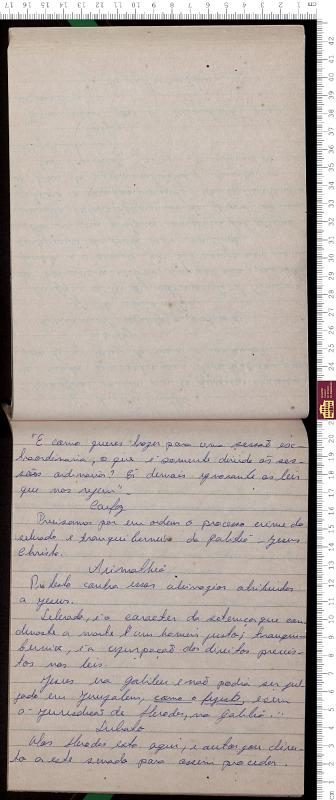 "E como queres trazer para uma sessão ex-
traordinaria, o que é somente divide ás ses-
sões ordinarias? És demais ignorante as leis
que nos regem".
Caifaz
Precisamos por em ordem o processo crime do
celerado, e tranqui berneiro da Galiléa - Jesus
Christo.
Arimathéa
Protesto contra essas aleivozias atribuidas
a Jesus.
Celerado, é o caracter da setença, que con-
demnaste a morte à um homem justo; tranqui-
é a usurpação dos direitos previs-
tos nas leis.
Jesus na Galileu e não podia ser jul-
gado em Jerusalem, como o fizeste, e sim
a jurisdição de Herodes, na Galiléa.
Mas Herodes está aqui, e autorizou direi-
to a este senado para assim proceder.